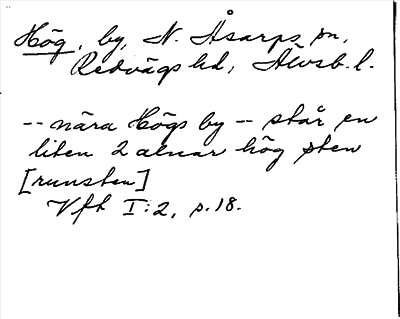 Hög, by, N. Åsarps sn,
Redvägs hd, Älvsb. l.
-- nära Högs by -- står en
liten 2 alnar hög sten
[runsten]
Vft I:2, s. 18.